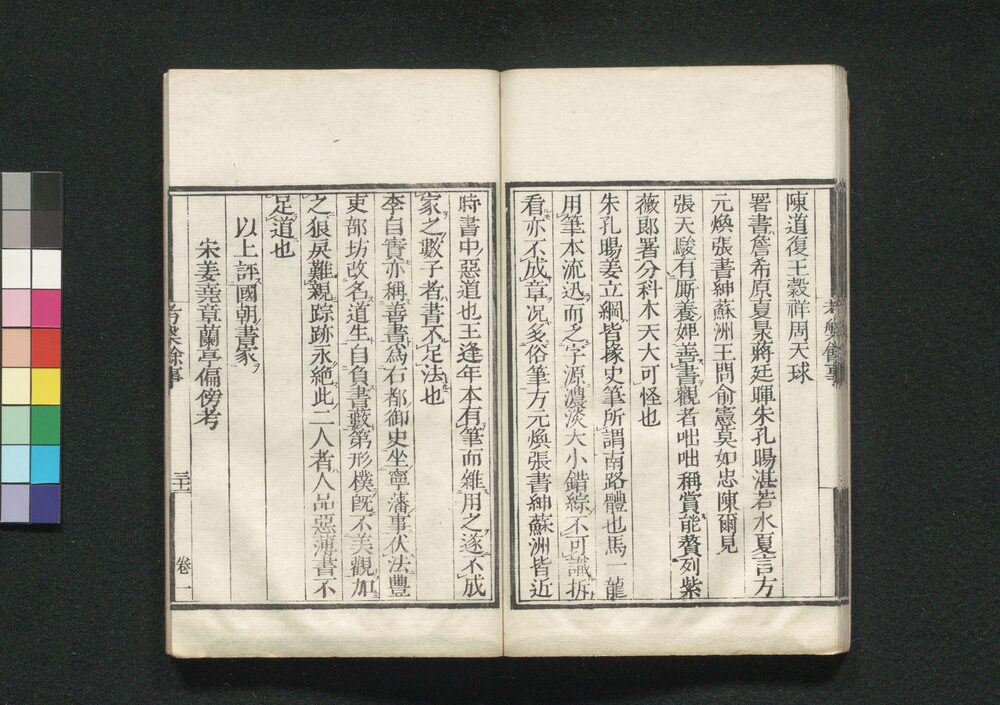 陳道復王穀祥周天球
署書詹希原夏㫤蔣廷暉朱孔暘湛若水夏言方
元煥張書紳蘇洲王問俞憲莫如忠陳爾見
張天駿有廝養婢善書觀者咄咄稱賞能贅列紫
薇郎署分科木天大可怪也
朱孔暘姜立綱皆掾史筆所謂南路體也馬一龍
用筆本流迅而乏字源濃淡大小錯綜不可識拆
看亦不成章况多俗筆方元煥張書紳蘇洲皆近
時書中惡道也王逢年本有筆而雑用之遂不成
家之數子者書不足法也
李自實亦稱善書爲右都御史坐寧藩事伏法豐
吏部坊改名道生自負書藪第形樸既不美觀加
之狼戾難親踪跡永絶此二人者人品惡薄書不
足道也
以上評國朝書家
宋姜堯章蘭亭偏傍考
考槃餘事
三十二
卷一